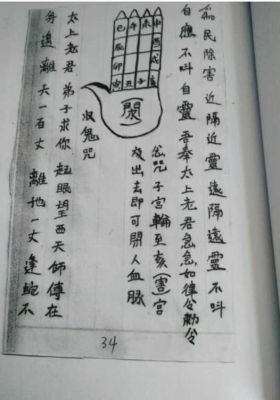 為民除害近隔近靈遠隔遠靈不叫
自應不叫自靈吾奉太上老君急急如律令勅令
巳午未申
辰酉
卯戌
寅丑子亥
念咒子宮輪至亥(害)宮
發出去即可閉人血脈
收鬼咒
太上老君弟子求你 起眠望西天師傅在
身邊離天一百丈 離地一丈 逢鮑不
34